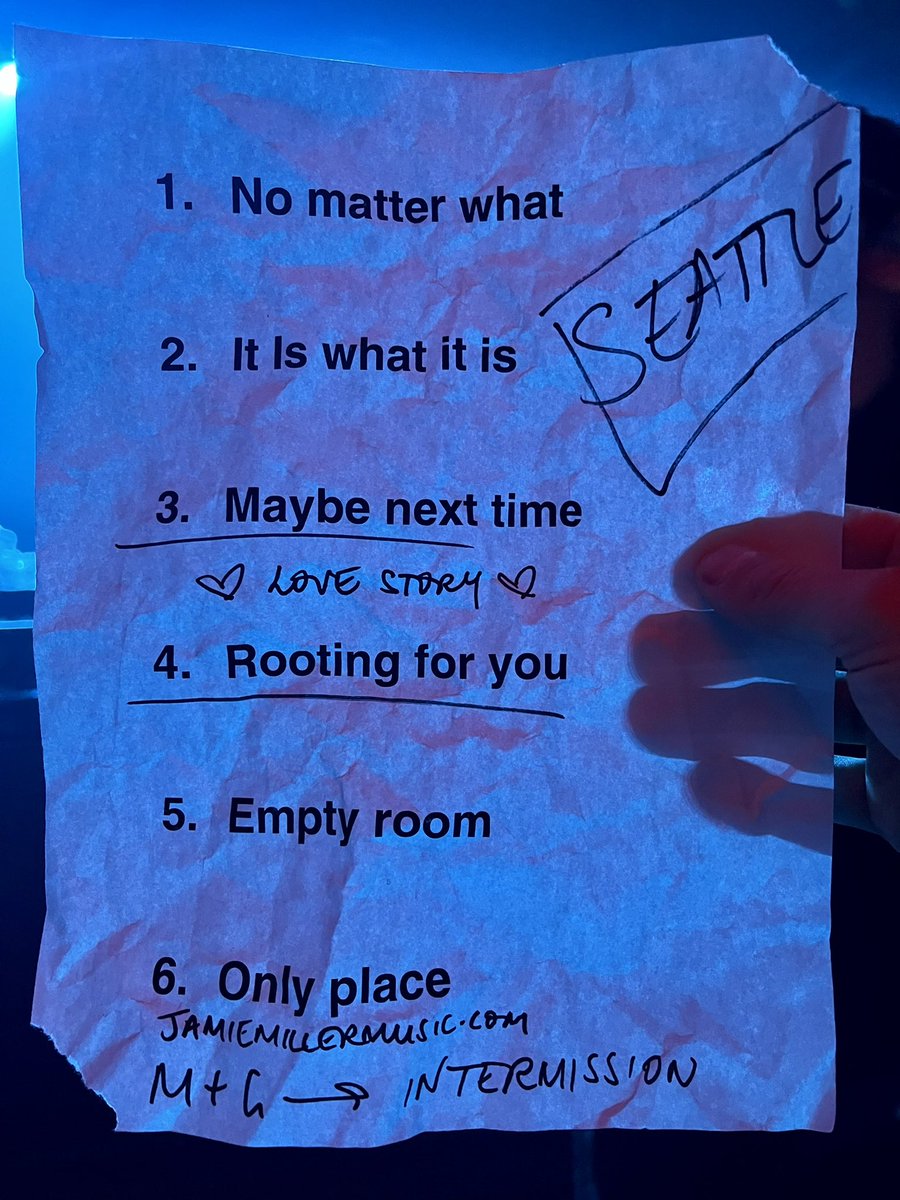 1. No matter what
SEATTLE
2. It Is what it is
3. Maybe next time
♡ LOVE STORY ♡
4. Rooting for you
5. Empty room
6. Only place
JAMIEMILLERMUSIC.COM
M + G → INTERMISSION